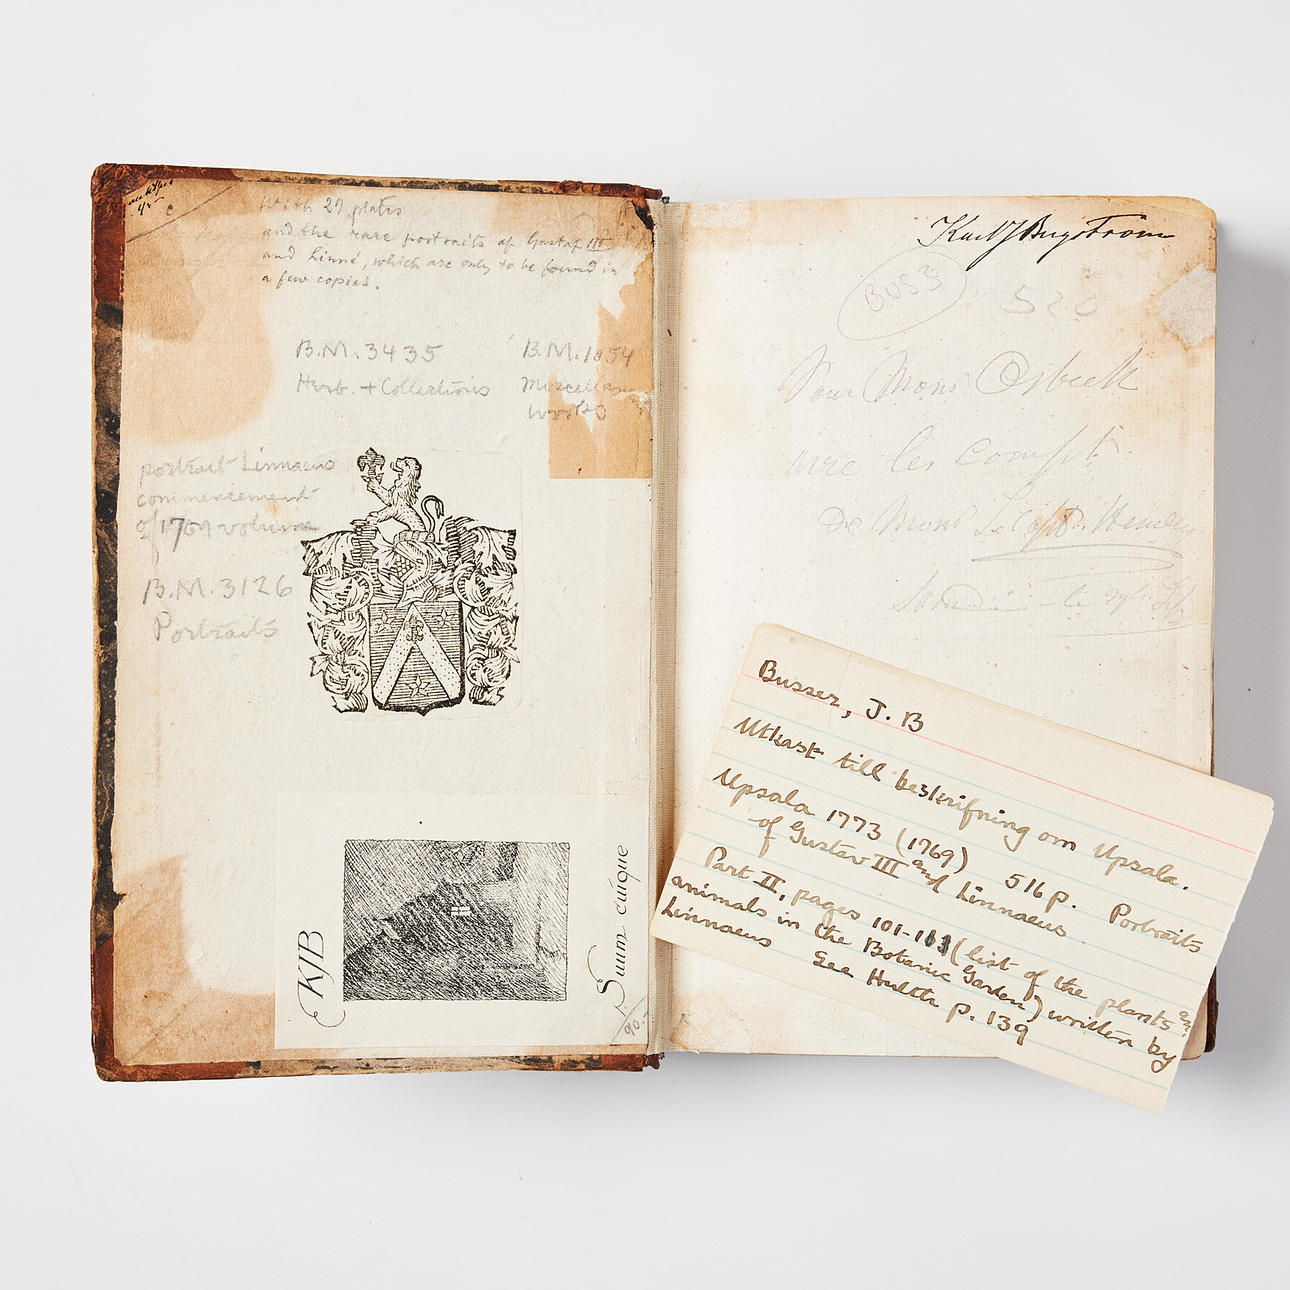 With 27 plates
and the rare portraits of Gustaf III
and Linné, which are only to be found in
a few copies.
B.M. 3435
Herb. + Collections
B.M. 1854
Miscellan
works
portrait Linnaeus
commencement
of 1769 volume
B.M. 3126
Portraits
KJB
Suum cuique
90:-
BUS3
520
Pour Mons
avec les compt.
De Mons
Busser, J. B
Utkast till beskrifning om Upsala.
Upsala 1773 (1769) 516 p. Portraits
of Gustav III and Linnaeus
Part II, pages 101-113 (list of the plants and
animals in the Botanic Garden) written by
Linnaeus See Hulth p. 139